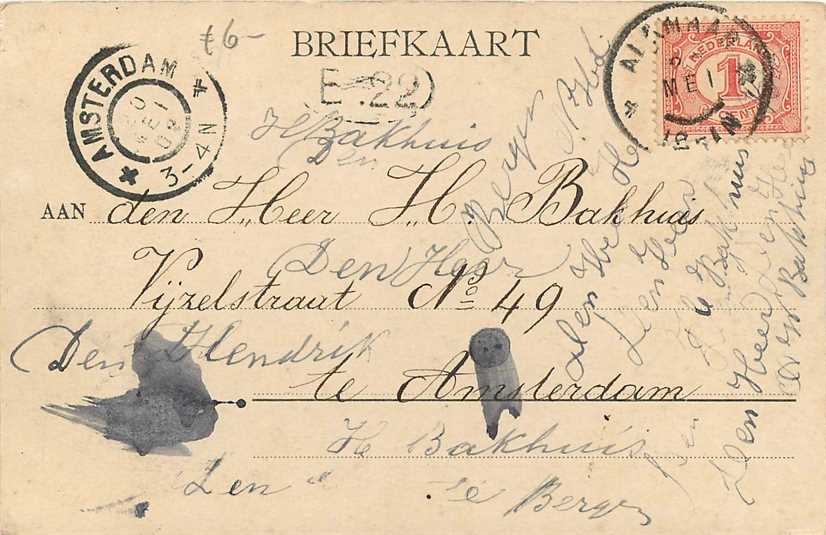 £6-
BRIEFKAART
E .22
AMSTERDAM
3-4N
ALKMAAR
MEI
NEDERLAND
1
CENT
H Bakhuis
Den
Bergen N Hol
AAN den Heer H. Bakhuis
Den Heer
Vijzelstraat No 49
Den Hendrik
te Amsterdam
H Bakhuis
Den
te Bergen
den Heer H
Den Heer
Bakhuis
Den Heer
Bakhuis